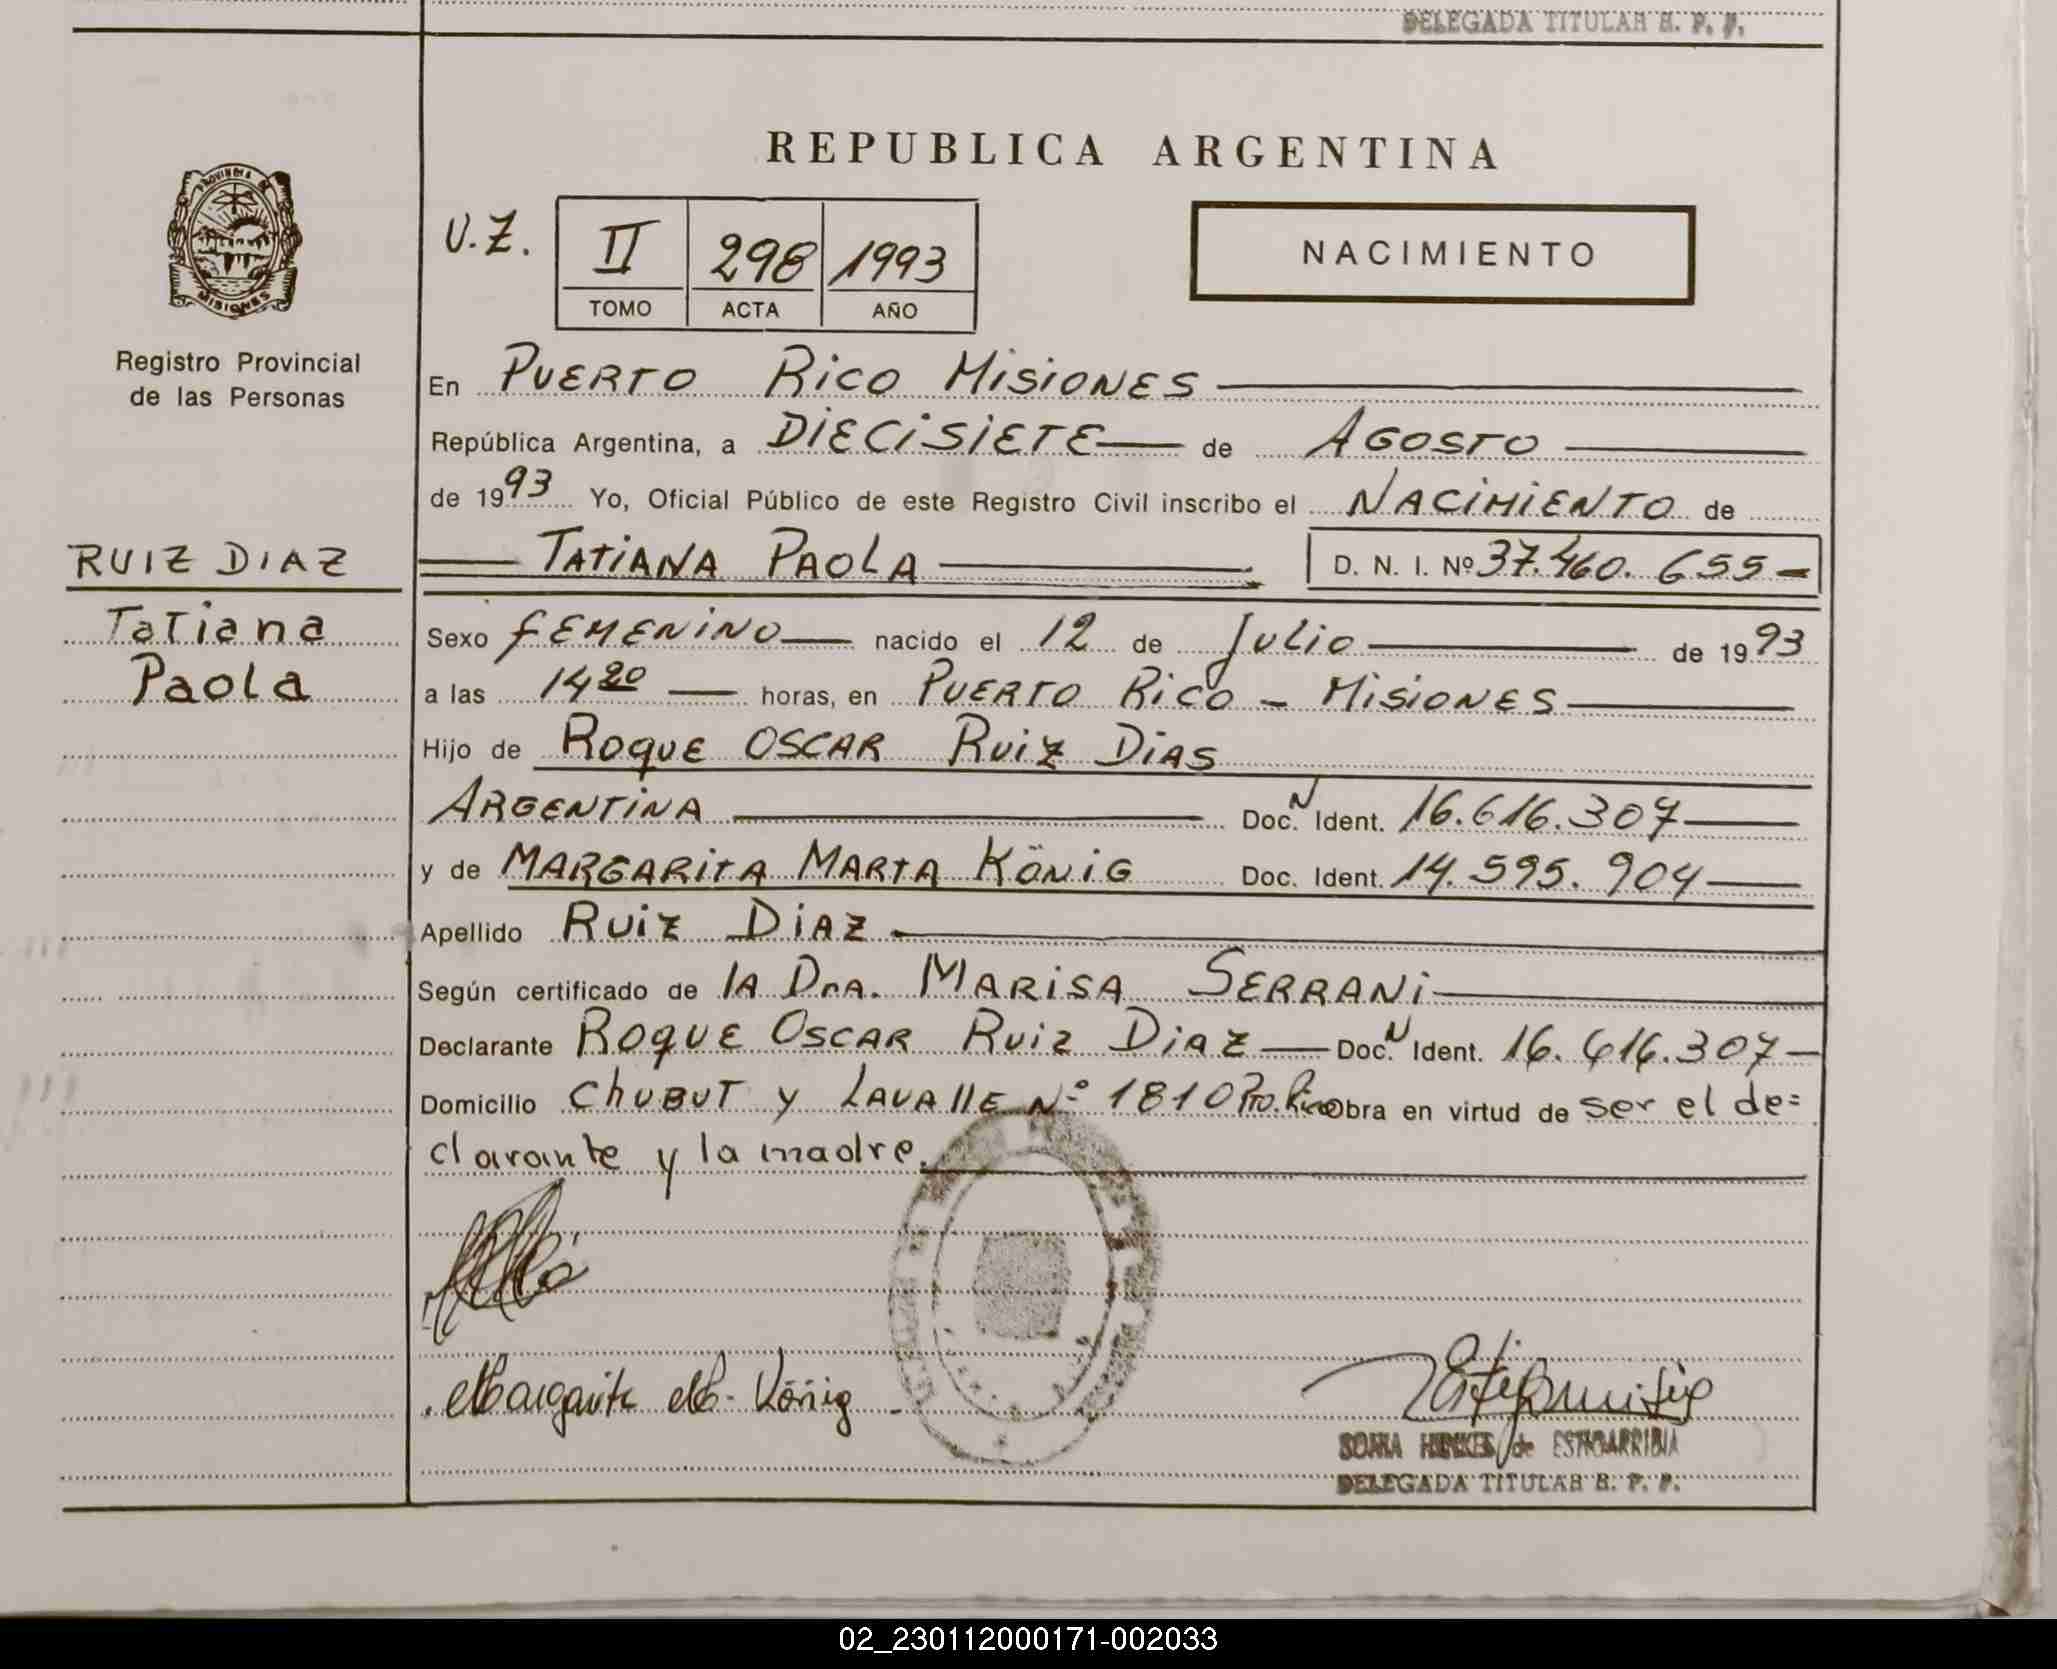 DELEGADA TITULAR R. P. P.
REPUBLICA ARGENTINA
PROVINCIA DE
MISIONES
Registro Provincial
de las Personas
U.Z.
II 298 1993
TOMO ACTA AÑO
NACIMIENTO
En PUERTO RICO MISIONES
República Argentina, a DIECISIETE de AGOSTO
de 1993 Yo, Oficial Público de este Registro Civil inscribo el NACIMIENTO de
TATIANA PAOLA D. N. I. Nº 37.460.655
RUIZ DIAZ
Tatiana
Paola
Sexo FEMENINO nacido el 12 de Julio de 1993
a las 14 20 horas, en PUERTO RICO - MISIONES
Hijo de ROQUE OSCAR RUIZ DIAS
ARGENTINA Doc. N Ident. 16.616.307
y de MARGARITA MARTA KÖNIG Doc. Ident. 14.595.904
Apellido RUIZ DIAZ
Según certificado de lA DRA. MARISA SERRANI
Declarante ROQUE OSCAR RUIZ DIAZ Doc. N Ident. 16.616.307
Domicilio CHUBUT Y LAVAllE Nº 1810 Pto. Rico Obra en virtud de ser el de=
clarante y la madre.
Margarita M. König
de ESTIGARRIBIA
DELEGADA TITULAR R. P. P.
02_230112000171-002033